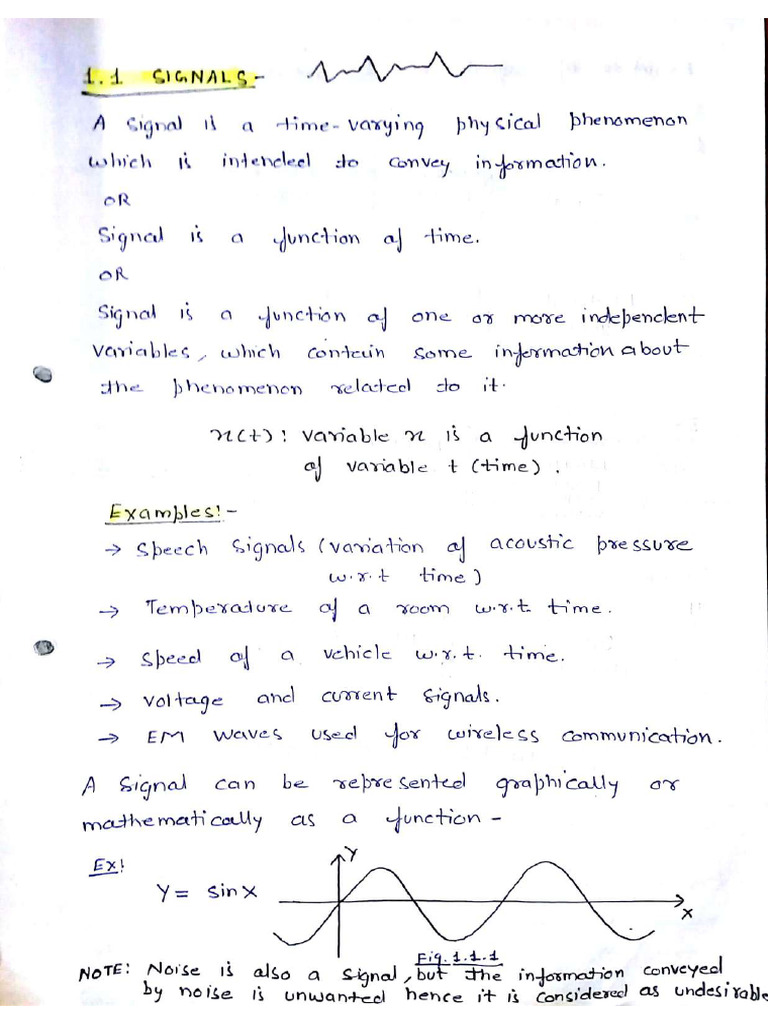 1.1 SIGNALS-
A signal is a time-varying physical phenomenon
which is intended to convey information.
OR
Signal is a function of time.
OR
Signal is a function of one or more independent
variables, which contain some information about
the phenomenon related to it.
x(t): variable x is a function
of variable t (time).
Examples:-
→ Speech signals (variation of acoustic pressure
w.r.t time)
→ Temperature of a room w.r.t. time.
→ Speed of a vehicle w.r.t. time.
→ Voltage and current signals.
→ EM waves used for wireless communication.
A signal can be represented graphically or
mathematically as a function -
Ex:
Y
Y = sin X
X
Fig. 1.1.1
NOTE: Noise is also a signal, but the information conveyed
by noise is unwanted hence it is considered as undesirable